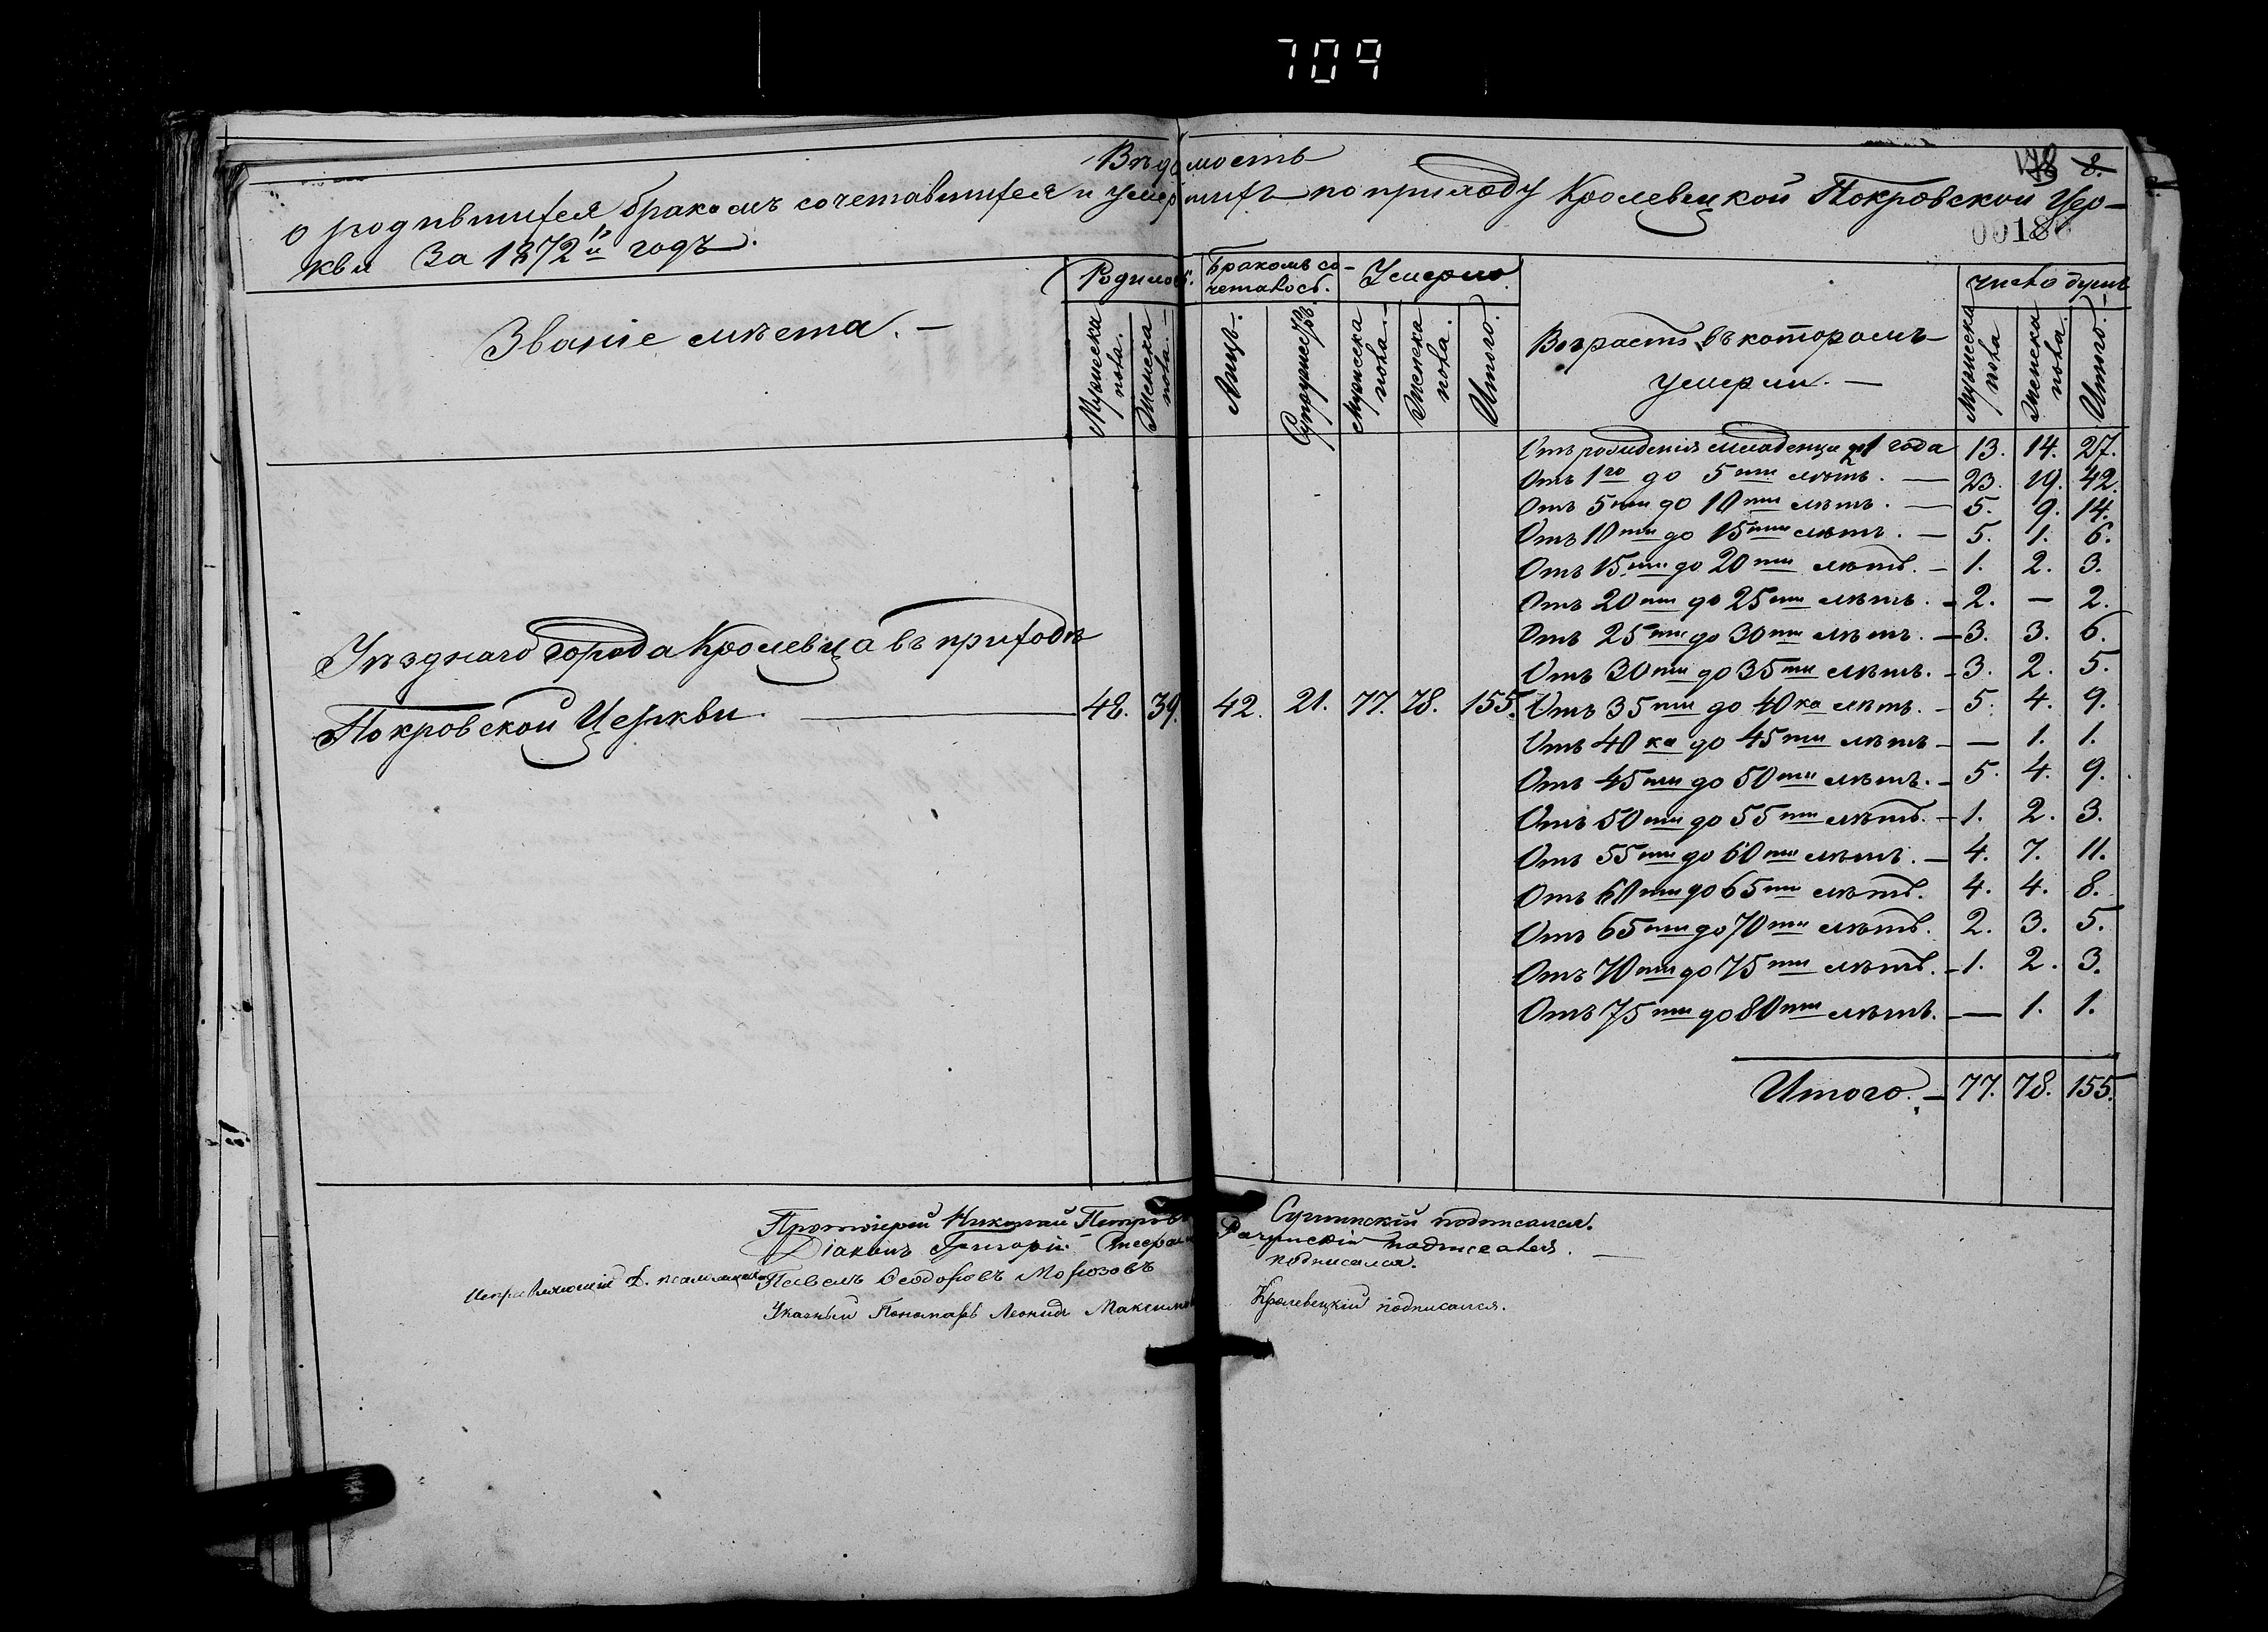 709
Вѣдомость
8.
о родившихся бракомъ сочетавшихся и умершихъ по приходу Кролевецкой Покровской Цер-
кви За 1872й годъ.
0018
Званіе мѣста. —
Родилось.
Бракомъ со-
четалось.
Умерло.
Возрастъ въ которомъ
умерли. —
Число душъ
Мужеска пола.
Женска пола.
Лицъ.
Супружествъ.
Мужеска пола.
Женска пола.
Итого.
Мужеска пола
Женска пола.
Итого.
Отъ рожденія младенцы до 1 года 13. 14. 27.
Отъ 1го до 5ти лѣтъ. — 23. 19. 42.
Отъ 5ти до 10ти лѣтъ. — 5. 9. 14.
Отъ 10ти до 15ти лѣтъ. — 5. 1. 6.
Отъ 15ти до 20ти лѣтъ. — 1. 2. 3.
Отъ 20ти до 25ти лѣтъ. — 2. — 2.
Отъ 25ти до 30ти лѣтъ. — 3. 3. 6.
Отъ 30ти до 35ти лѣтъ. — 3. 2. 5.
Уѣзднаго города Кролевца въ приходѣ
Покровской Церкви. — 48. 39. 42. 21. 77. 78. 155.
Отъ 35ти до 40ка лѣтъ. — 5. 4. 9.
Отъ 40ка до 45ти лѣтъ — — 1. 1.
Отъ 45ти до 50ти лѣтъ. — 5. 4. 9.
Отъ 50ти до 55ти лѣтъ. — 1. 2. 3.
Отъ 55ти до 60ти лѣтъ. — 4. 7. 11.
Отъ 60ти до 65ти лѣтъ. 4. 4. 8.
Отъ 65ти до 70ти лѣтъ. 2. 3. 5.
Отъ 70ти до 75ти лѣтъ. — 1. 2. 3.
Отъ 75ти до 80ти лѣтъ. — — 1. 1.
Итого. — 77. 78. 155.
Протоіерей Николай Петровъ подписался.
Діаконъ Григорій подписался. —
Павелъ Ѳеодоровъ Морозовъ подписался.
Указный Пономарь Леонидъ Максимов Кролевецкій подписался.